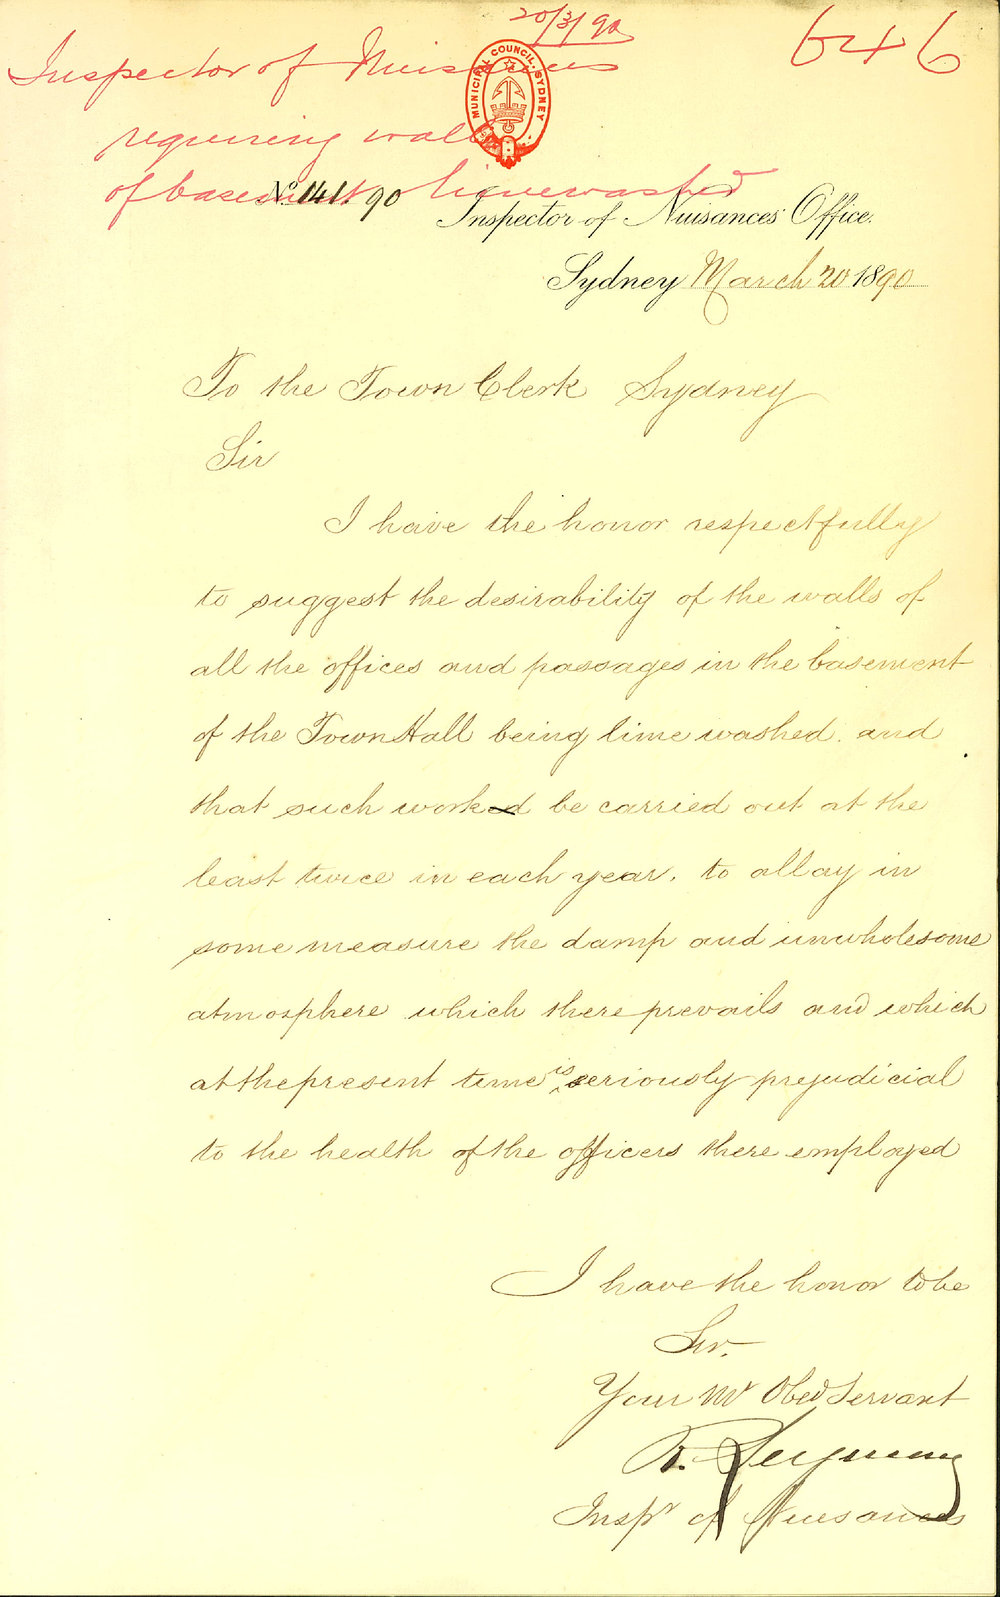 20/3/90
646
Inspector of Nuisances
requiring walls
of basement limewashed
MUNICIPAL COUNCIL. SYDNEY
No. 141. 90
Inspector of Nuisances' Office.
Sydney March 20 1890
To the Town Clerk Sydney
Sir
I have the honor respectfully
to suggest the desirability of the walls of
all the offices and passages in the basement
of the Town Hall being lime washed. and
that such worked be carried out at the
least twice in each year, to allay in
some measure the damp and unwholesome
atmosphere which there prevails and which
at the present time is seriously prejudicial
to the health of the officers there employed
I have the honor to be
Sir.
Your Mt Obed Servant
R. Seymour
Inspr of Nuisances